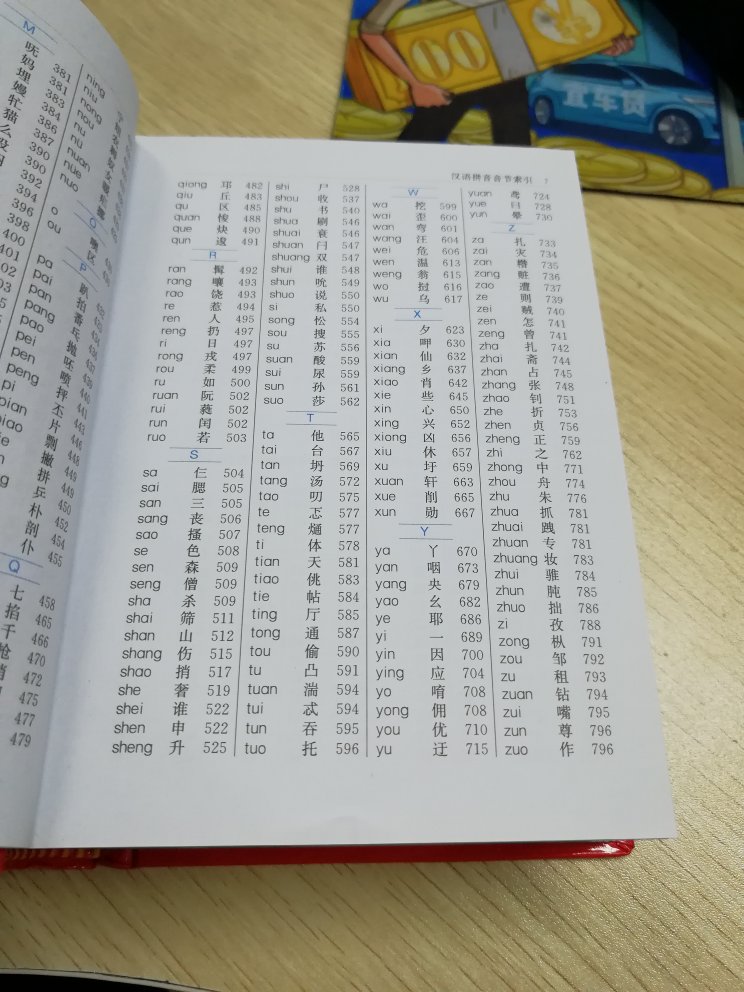 宜车贷
M
呒 381
妈 381
埋 383
嫚 384
牤 386
猫 387
么 390
没 390
ning
niu
nong
nou
nu
nü
nuan
nüe
nuo
O
o
ou
P
pa
pai
pan
pang
pao
pei
pen
peng
pi
pian
piao
Q
七 458
掐 465
千 466
470
472
475
477
479
汉语拼音音节索引 7
qiong 邛 482
qiu 丘 483
qu 区 485
quan 悛 488
que 炔 490
qun 逡 491
R
ran 髯 492
rang 嚷 493
rao 饶 493
re 惹 494
ren 人 495
reng 扔 497
ri 日 497
rong 戎 497
rou 柔 499
ru 如 500
ruan 阮 502
rui 蕤 502
run 闰 502
ruo 若 503
S
sa 仨 504
sai 腮 505
san 三 505
sang 丧 506
sao 搔 507
se 色 508
sen 森 509
seng 僧 509
sha 杀 509
shai 筛 511
shan 山 512
shang 伤 515
shao 捎 517
she 奢 519
shei 谁 522
shen 申 522
sheng 升 525
shi 尸 528
shou 收 537
shu 书 540
shua 刷 546
shuai 衰 546
shuan 闩 547
shuang 双 547
shui 谁 548
shun 吮 549
shuo 说 550
si 私 550
song 忪 554
sou 搜 555
su 苏 556
suan 酸 559
sui 尿 559
sun 孙 561
suo 莎 562
T
ta 他 565
tai 台 567
tan 坍 569
tang 汤 572
tao 叨 575
te 忑 577
teng 熥 577
ti 体 578
tian 天 581
tiao 佻 583
tie 帖 584
ting 厅 585
tong 通 587
tou 偷 590
tu 凸 591
tuan 湍 594
tui 忒 594
tun 吞 595
tuo 托 596
W
wa 挖 599
wai 歪 600
wan 弯 601
wang 汪 604
wei 危 606
wen 温 613
weng 翁 615
wo 挝 616
wu 乌 617
X
xi 夕 623
xia 呷 630
xian 仙 632
xiang 乡 637
xiao 肖 642
xie 些 645
xin 心 650
xing 兴 652
xiong 凶 656
xiu 休 657
xu 圩 659
xuan 轩 663
xue 削 665
xun 勋 667
Y
ya 丫 670
yan 咽 673
yang 央 679
yao 幺 682
ye 耶 686
yi 一 689
yin 因 700
ying 应 704
yo 唷 708
yong 佣 708
you 优 710
yu 迂 715
yuan 鸢 724
yue 曰 728
yun 晕 730
Z
za 扎 733
zai 灾 734
zan 糌 735
zang 脏 736
zao 遭 737
ze 则 739
zei 贼 740
zen 怎 741
zeng 曾 741
zha 扎 742
zhai 斋 744
zhan 占 745
zhang 张 748
zhao 钊 751
zhe 折 753
zhen 贞 756
zheng 正 759
zhi 之 762
zhong 中 771
zhou 舟 774
zhu 朱 776
zhua 抓 781
zhuai 跩 781
zhuan 专 781
zhuang 妆 783
zhui 骓 784
zhun 肫 785
zhuo 拙 786
zi 孜 788
zong 枞 791
zou 邹 792
zu 租 793
zuan 钻 794
zui 嘴 795
zun 尊 796
zuo 作 796